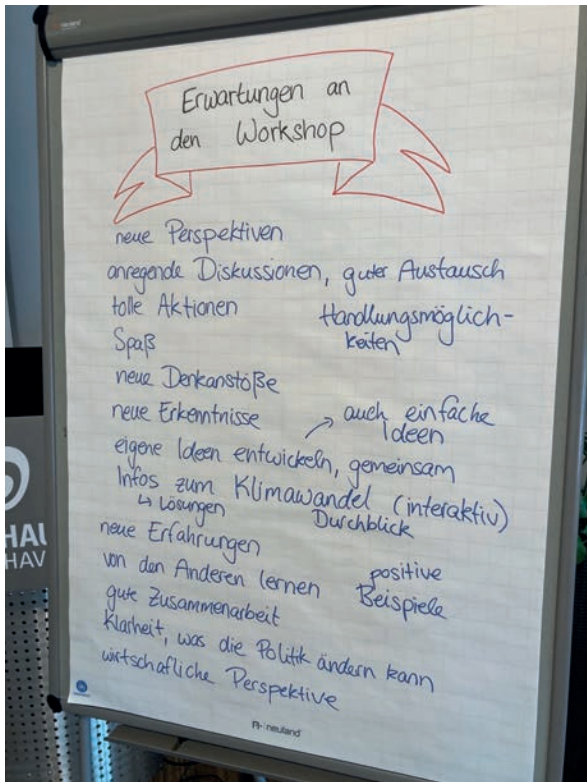 Erwartungen an
den Workshop
neue Perspektiven
anregende Diskussionen, guter Austausch
tolle Aktionen
Handlungsmöglich-
keiten
Spaß
neue Denkanstöße
neue Erkenntnisse
auch einfache
Ideen
eigene Ideen entwickeln, gemeinsam
Infos zum Klimawandel (interaktiv)
↳ Lösungen
Durchblick
neue Erfahrungen
von den Anderen lernen
positive
Beispiele
gute Zusammenarbeit
Klarheit, was die Politik ändern kann
wirtschafliche Perspektive
neuland
HAU
HAV